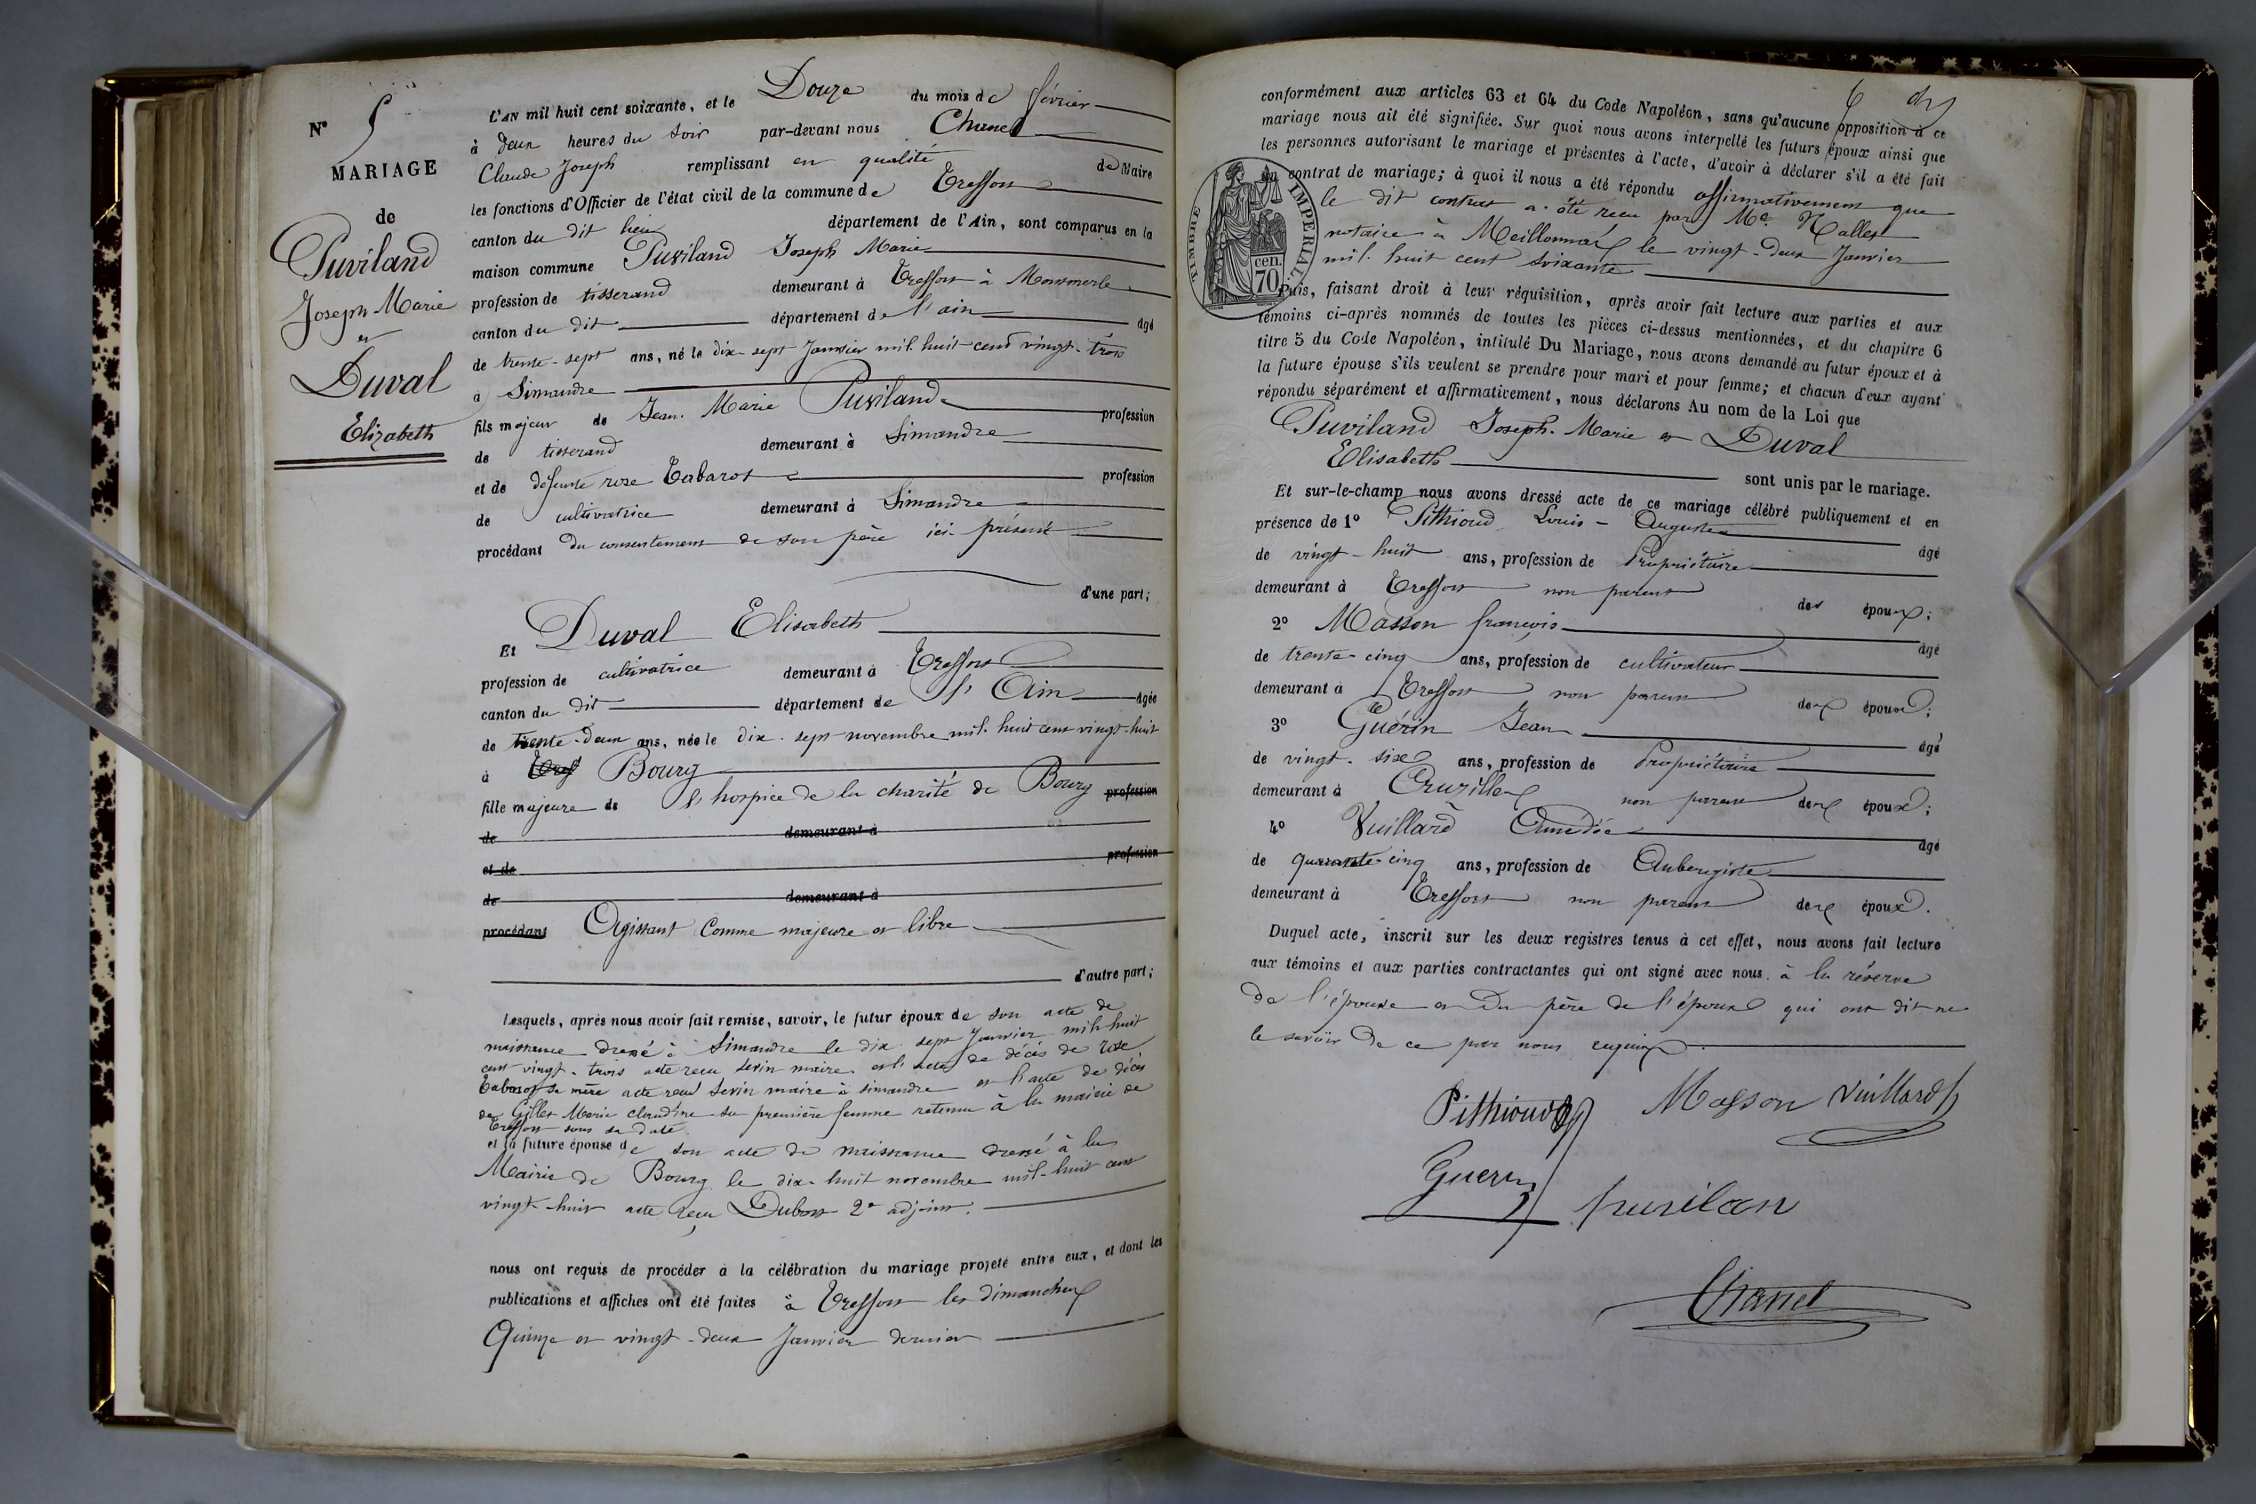 N° 5
MARIAGE
de
Puviland
Joseph Marie
et
Duval
Elizabeth
L'AN mil huit cent soixante, et le Douze du mois de février
à deux heures du soir par-devant nous Chanel
Claude Joseph remplissant en qualité de Maire
les fonctions d'Officier de l'état civil de la commune de Treffort
canton du dit lieu département de l'Ain, sont comparus en la
maison commune Puviland Joseph Marie
profession de tisserand demeurant à Treffort à Montmerle
canton du dit département de l'ain âgé
de trente-sept ans, né le dix-sept Janvier mil huit cent vingt-trois
à Simandre
fils majeur de Jean-Marie Puviland profession
de tisserand demeurant à Simandre
et de défunte rose Tabarot profession
de cultivatrice demeurant à Simandre
procédant du consentement de son père ici présent
d'une part;
Et Duval Elisabeth
profession de cultivatrice demeurant à Treffort
canton du dit département de l'Ain âgée
de trente-deux ans, née le dix-sept novembre mil huit cent vingt-huit
à Tref Bourg
fille majeure de l'hospice de la charité de Bourg profession
de demeurant à
et de profession
de demeurant à
procédant Agissant comme majeure et libre
d'autre part;
Lesquels, après nous avoir fait remise, savoir, le futur époux de son acte de
naissance dressé à Simandre le dix sept Janvier mil huit
cent vingt-trois acte recu Sevin maire et l'acte de décès de rose
Tabarot sa mère acte recu Sevin maire à simandre et l'acte de décès
de Gillet Marie claudine sa première femme retenu à la mairie de
Treffort sous sa date.
et la future épouse de son acte de naissance dressé à la
Mairie de Bourg le dix-huit novembre mil-huit cent
vingt-huit acte reçu Dubost 2e adjoint.
nous ont requis de procéder à la célébration du mariage projeté entre eux, et dont les
publications et affiches ont été faites à Treffort les dimanches
Quinze et vingt-deux Janvier dernier
6
conformément aux articles 63 et 64 du Code Napoléon, sans qu'aucune opposition à ce
mariage nous ait été signifiée. Sur quoi nous avons interpellé les futurs époux ainsi que
les personnes autorisant le mariage et présentes à l'acte, d'avoir à déclarer s'il a été fait
un contrat de mariage; à quoi il nous a été répondu affirmativement que
le dit contrat a été recu par Me Nallet
notaire à Meillonnas le vingt-deux Janvier
mil huit cent soixante
TIMBRE IMPERIAL.
cen.
70
Puis, faisant droit à leur réquisition, après avoir fait lecture aux parties et aux
témoins ci-après nommés de toutes les pièces ci-dessus mentionnées, et du chapitre 6
titre 5 du Code Napoléon, intitulé Du Mariage, nous avons demandé au futur époux et à
la future épouse s'ils veulent se prendre pour mari et pour femme; et chacun d'eux ayant
répondu séparément et affirmativement, nous déclarons Au nom de la Loi que
Puviland Joseph-Marie et Duval
Elisabeth sont unis par le mariage.
Et sur-le-champ nous avons dressé acte de ce mariage célébré publiquement et en
présence de 1° Pithioud Louis-Auguste
âgé
de vingt-huit ans, profession de Propriétaire
demeurant à Treffort non parent des époux;
2° Masson françois
âgé
de trente-cinq ans, profession de cultivateur
demeurant à Treffort non parent des époux;
3° Guérin Jean
âgé
de vingt-six ans, profession de Propriétaire
demeurant à Cruzilles non parent des époux;
4° Vuillard Amédée
âgé
de quarante-cinq ans, profession de Aubergiste
demeurant à Treffort non parent des époux.
Duquel acte, inscrit sur les deux registres tenus à cet effet, nous avons fait lecture
aux témoins et aux parties contractantes qui ont signé avec nous à la réserve
de l'épouse et du père de l'époux qui ont dit ne
le savoir de ce par nous enquis
Pithioud Masson Vuillard
Guerin puvilan
Chanel